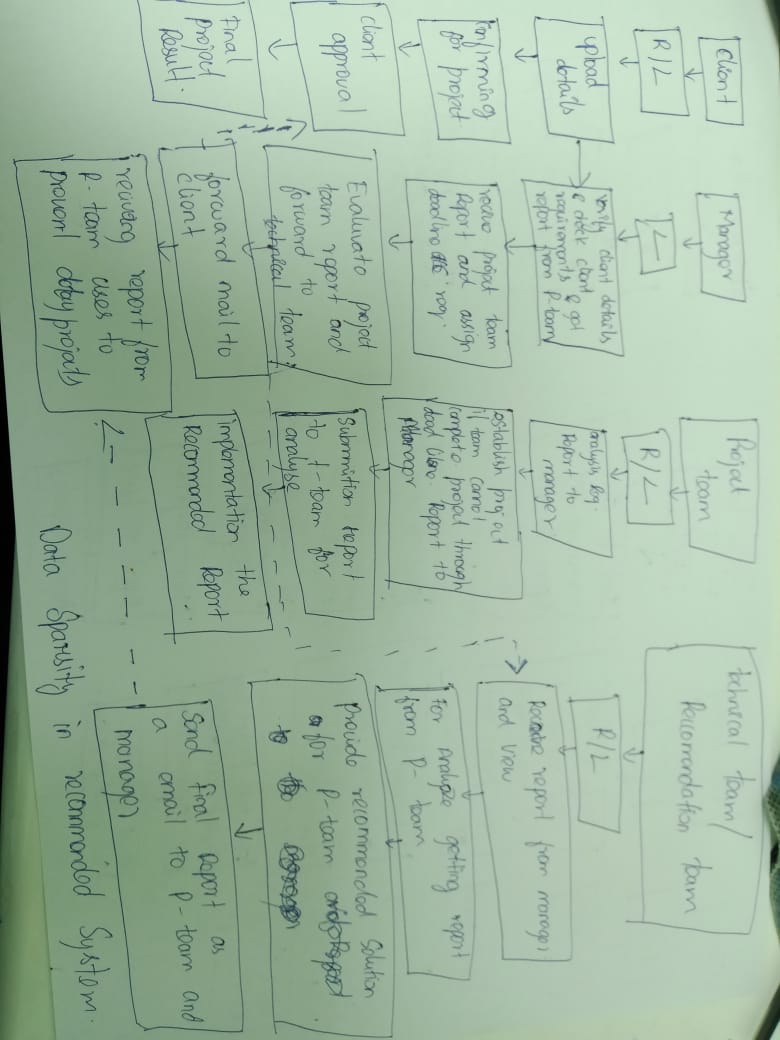 Client
R/L
upload
details
Confirming
for project
client
approval
Final
Project
Result.
Manager
L
verify client details
& check client
requirements & get
report from P-team
recive project team
Report and assign
deadline req.
Evaluvate project
team report and
forward to
technical team.
forward mail to
client
reciving report from
P-team uses to
prevent delay projects
Project
team
R/L
analysis Req.
Report to
manager
establish project
if team cannot
complete project through
dead line. Report to
Manager
Submmition report
to t-team for
analyse
implementation the
Recommanded Report
technical team/
Reccomendation team
R/L
report from manager
and view
For Analyze getting report
from P-team
provide recommended Solution
for P-team
to
Send final Report as
a email to P-team and
manager
Data Sparsity in recommended System.